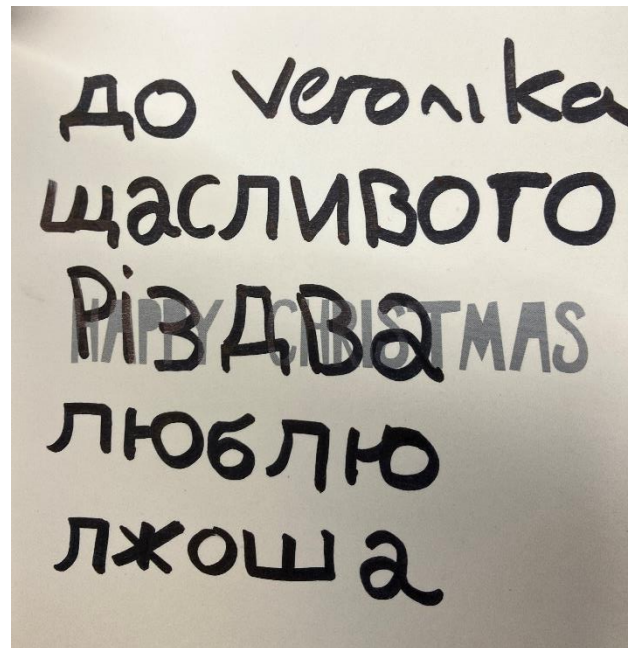 до Veronika
щасливого
Різдва
HAPPY CHRISTMAS
люблю
лжоша